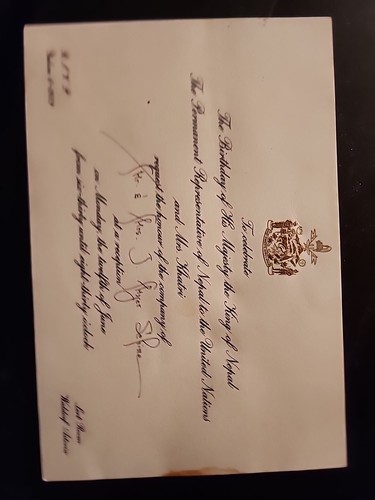 To celebrate
The Birthday of His Majesty the King of Nepal
The Permanent Representative of Nepal to the United Nations
and Mrs Khatri
request the honour of the company of
Mr. & Mrs. J
at a reception
on Monday, the twelfth of June
from six-thirty until eight-thirty o'clock
R.S.V.P.